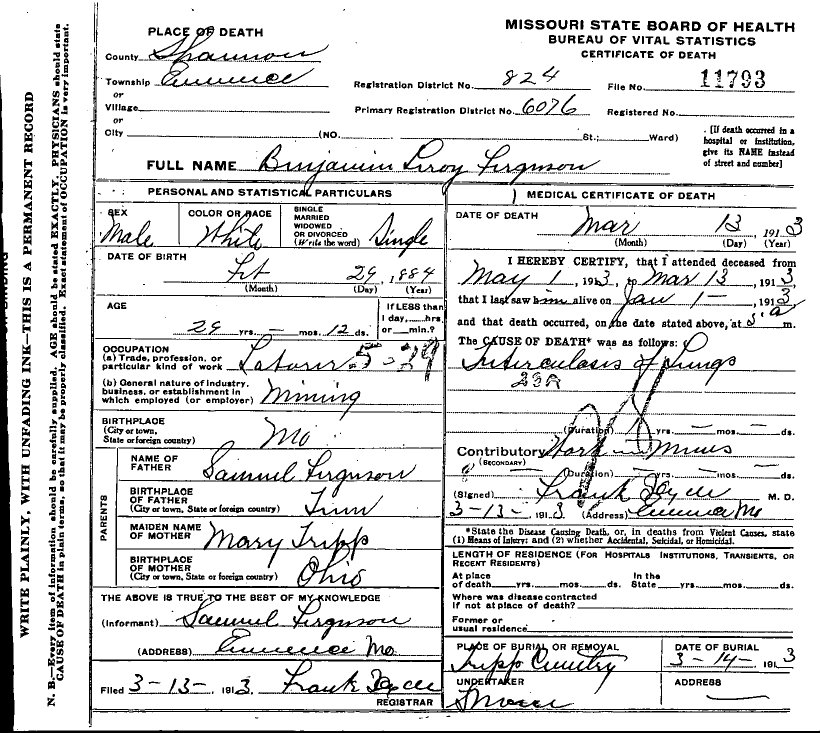 MISSOURI STATE BOARD OF HEALTH
BUREAU OF VITAL STATISTICS
CERTIFICATE OF DEATH
PLACE OF DEATH
County Shannon
Township Eminence
or
Village
or
City (NO. St.; Ward)
Registration District No. 824 File No. 11793
Primary Registration District No. 6076 Registered No.
[If death occurred in a
hospital or institution,
give its NAME instead
of street and number]
FULL NAME Benjamin Leroy Ferguson
PERSONAL AND STATISTICAL PARTICULARS
SEX
Male
COLOR OR RACE
White
SINGLE
MARRIED
WIDOWED
OR DIVORCED
(Write the word) Single
DATE OF BIRTH
29, 1884
(Month) (Day) (Year)
AGE
29 yrs. — mos. 12 ds.
If LESS than
1 day, hrs.
or min.?
OCCUPATION
(a) Trade, profession, or
particular kind of work Laborer 5-29
(b) General nature of industry,
business, or establishment in
which employed (or employer) Mining
BIRTHPLACE
(City or town,
State or foreign country) Mo
PARENTS
NAME OF
FATHER Samuel Ferguson
BIRTHPLACE
OF FATHER
(City or town, State or foreign country) Tenn
MAIDEN NAME
OF MOTHER Mary Tripp
BIRTHPLACE
OF MOTHER
(City or town, State or foreign country) Ohio
THE ABOVE IS TRUE TO THE BEST OF MY KNOWLEDGE
(Informant) Samuel Ferguson
(ADDRESS) Eminence Mo.
Filed 3-13-, 1913, Frank
REGISTRAR
MEDICAL CERTIFICATE OF DEATH
DATE OF DEATH
Mar 13, 1913
(Month) (Day) (Year)
I HEREBY CERTIFY, that I attended deceased from
May 1, 1913, to Mar 13, 1913,
that I last saw him alive on Jan 1-, 1913
and that death occurred, on the date stated above, at 5 a m.
The CAUSE OF DEATH* was as follows:
Tuberculosis of Lungs
23A
(Duration) 1 yrs. — mos. — ds.
Contributory Work in Mines
(SECONDARY)
(Duration) — yrs. — mos. — ds.
(Signed) Frank M. D.
3-13-, 1913 (Address) Eminence Mo
*State the Disease Causing Death, or, in deaths from Violent Causes, state
(1) Means of Injury; and (2) whether Accidental, Suicidal, or Homicidal.
LENGTH OF RESIDENCE (FOR HOSPITALS INSTITUTIONS, TRANSIENTS, OR
RECENT RESIDENTS)
At place
of death yrs. mos. ds.
In the
State yrs. mos. ds.
Where was disease contracted
if not at place of death?
Former or
usual residence
PLACE OF BURIAL OR REMOVAL
Tripp Cemetry
DATE OF BURIAL
3-14-, 1913
UNDERTAKER
ADDRESS
—
WRITE PLAINLY, WITH UNFADING INK—THIS IS A PERMANENT RECORD
N. B.—Every item of information should be carefully supplied. AGE should be stated EXACTLY, PHYSICIANS should state
CAUSE OF DEATH in plain terms, so that it may be properly classified. Exact statement of OCCUPATION is very important.